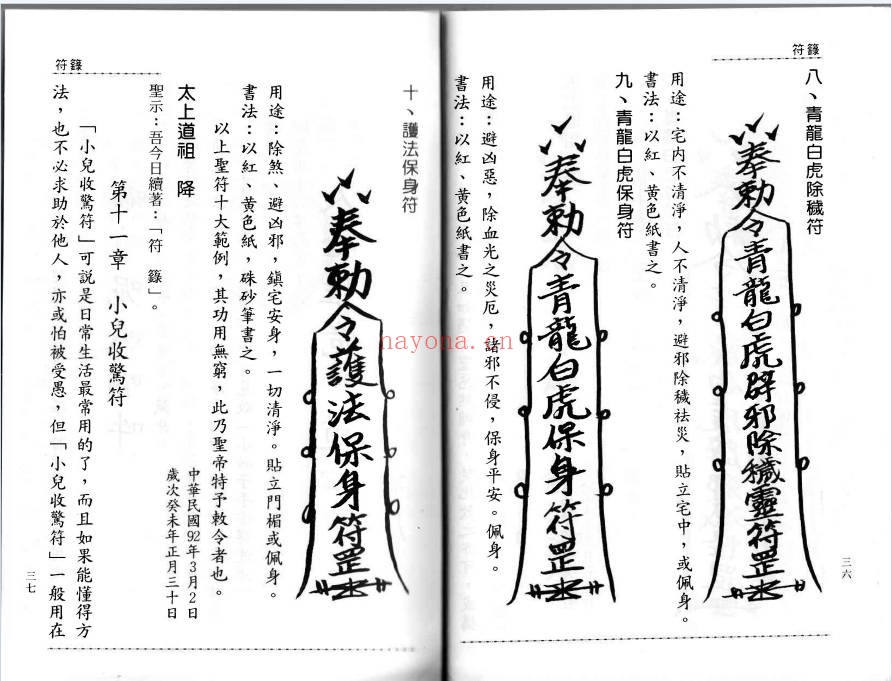 符籙
八、青龍白虎除穢符
奉勅令青龍白虎辟邪除穢靈符罡
用途：宅內不清淨，人不清淨，避邪除穢祛災，貼立宅中，或佩身。
書法：以紅、黃色紙書之。
九、青龍白虎保身符
奉勅令青龍白虎保身符罡
用途：避凶惡，除血光之災厄，諸邪不侵，保身平安。佩身。
書法：以紅、黃色紙書之。
三六
符籙
十、護法保身符
奉勅令護法保身符罡
用途：除煞、避凶邪，鎮宅安身，一切清淨。貼立門楣或佩身。
書法：以紅、黃色紙，硃砂筆書之。
以上聖符十大範例，其功用無窮，此乃聖帝特予敕令者也。
太上道祖　降
中華民國92年3月2日
歲次癸未年正月三十日
聖示：吾今日續著：「符　籙」。
第十一章　小兒收驚符
「小兒收驚符」可說是日常生活最常用的了，而且如果能懂得方
法，也不必求助於他人，亦或怕被受愚，但「小兒收驚符」一般用在
三七
nayona.cn